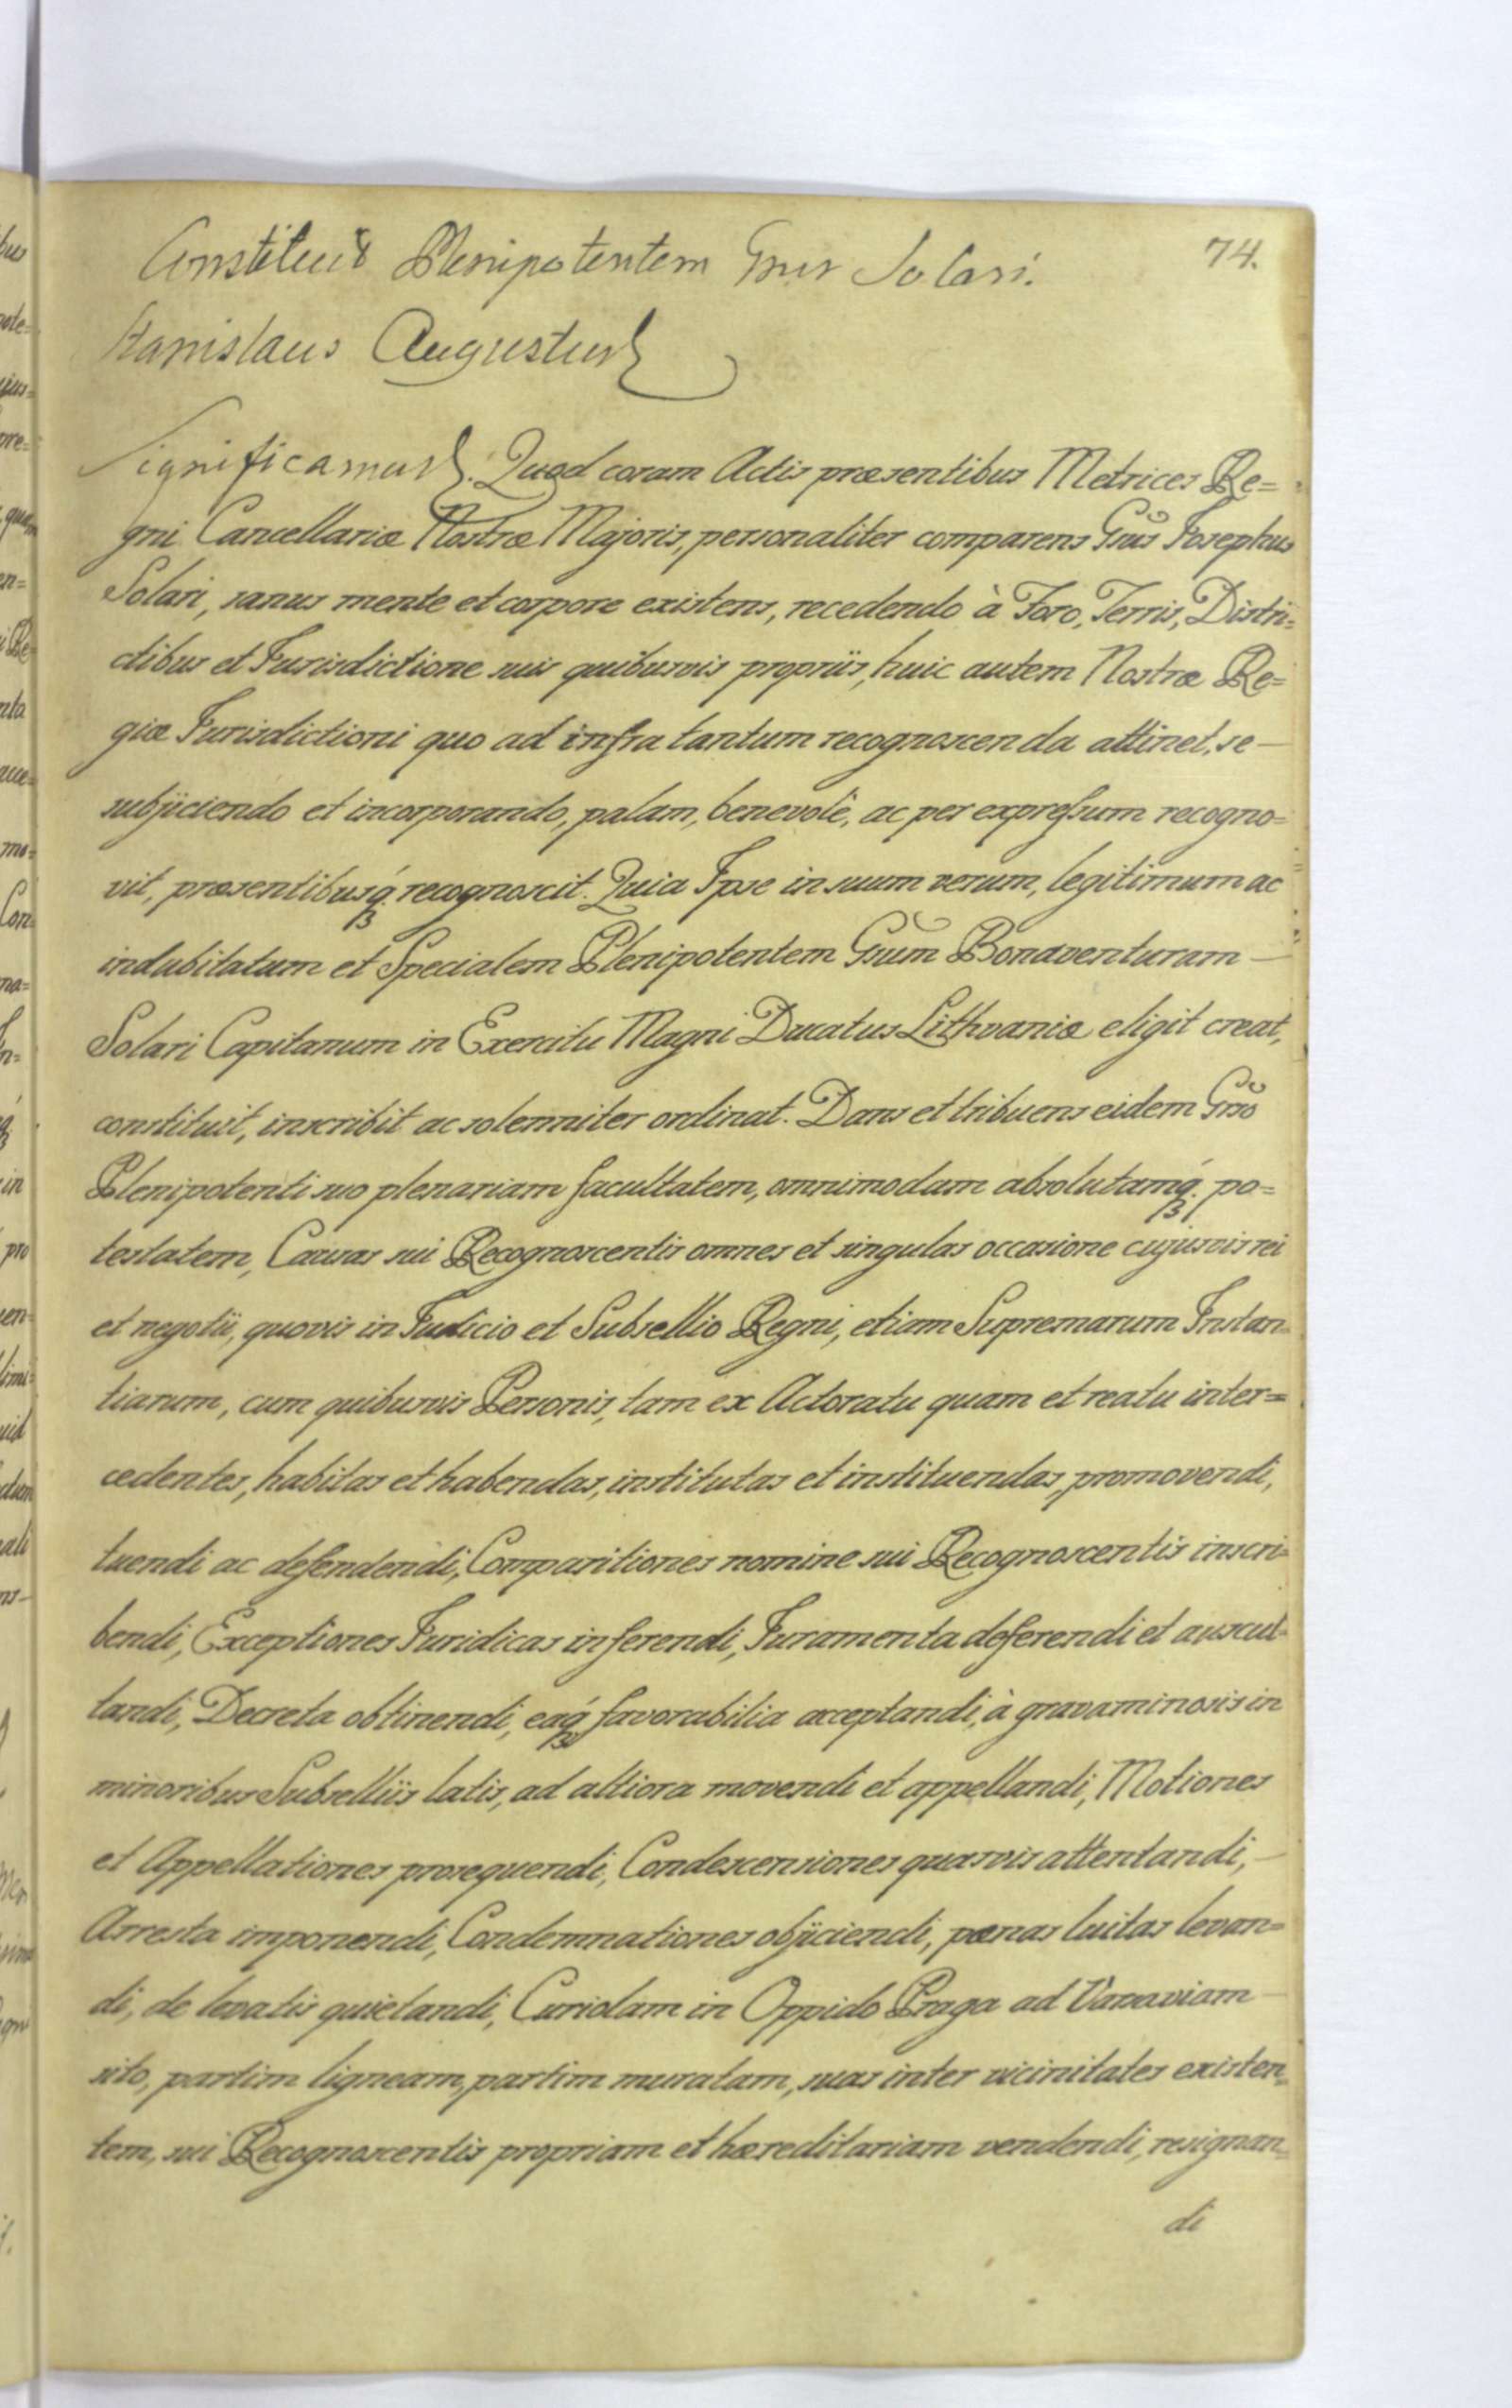 74.
Constituit Plenipotentem Gnus Solari.
Stanislaus Augustus
Significamus. Quod coram Actis præsentibus Metrices Re=
gni Cancellariæ Nostræ Majoris, personaliter comparens Gnus Josephus
Solari, sanus mente et corpore existens, recedendo à Foro, Terris, Distri=
ctibus et Jurisdictione suis quibusvis propriis, huic autem Nostræ Re=
giæ Jurisdictioni quo ad infra tantum recognoscenda attinet, se
subijciendo et incorporando, palam, benevolè, ac per expressum recogno=
vit, præsentibusq́ recognoscit. Quia Ipse in suum verum, legitimum ac
indubitatum et Specialem Plenipotentem Gnum Bonaventuram
Solari Capitanum in Exercitu Magni Ducatus Lithvaniæ eligit creat,
constituit, inscribit ac solemniter ordinat. Dans et tribuens eidem Gnso
Plenipotenti suo plenariam facultatem, omnimodam absolutamq́. po=
testatem, Causas sui Recognoscentis omnes et singulas occasione cujusvis rei
et negotii, quovis in Judicio et Subsellio Regni, etiam Supremarum Instan=
tiarum, cum quibusvis Personis, tam ex Actoratu quam et reatu inter=
cedentes, habitas et habendas, institutas et instituendas, promovendi,
tuendi ac defendendi, Comparitiones nomine sui Recognoscentis inscri=
bendi, Exceptiones Juridicas inferendi, Juramenta deferendi et auscul=
tandi, Decreta obtinendi, eaq́ favorabilia acceptandi, à gravaminosis in
minoribus Subselliis latis, ad altiora movendi et appellandi, Motiones
et Appellationes prosequendi, Condescensiones quasvis attentandi,
Arresta imponendi, Condemnationes obijciendi, pænas luitas levan=
di, de levatis quietandi, Curiolam in Oppido Praga ad Varsaviam
sito, partim ligneam, partim muratam, suas inter vicinitates existen=
tem, sui Recognoscentis propriam et hæreditariam vendendi, resignan=
di